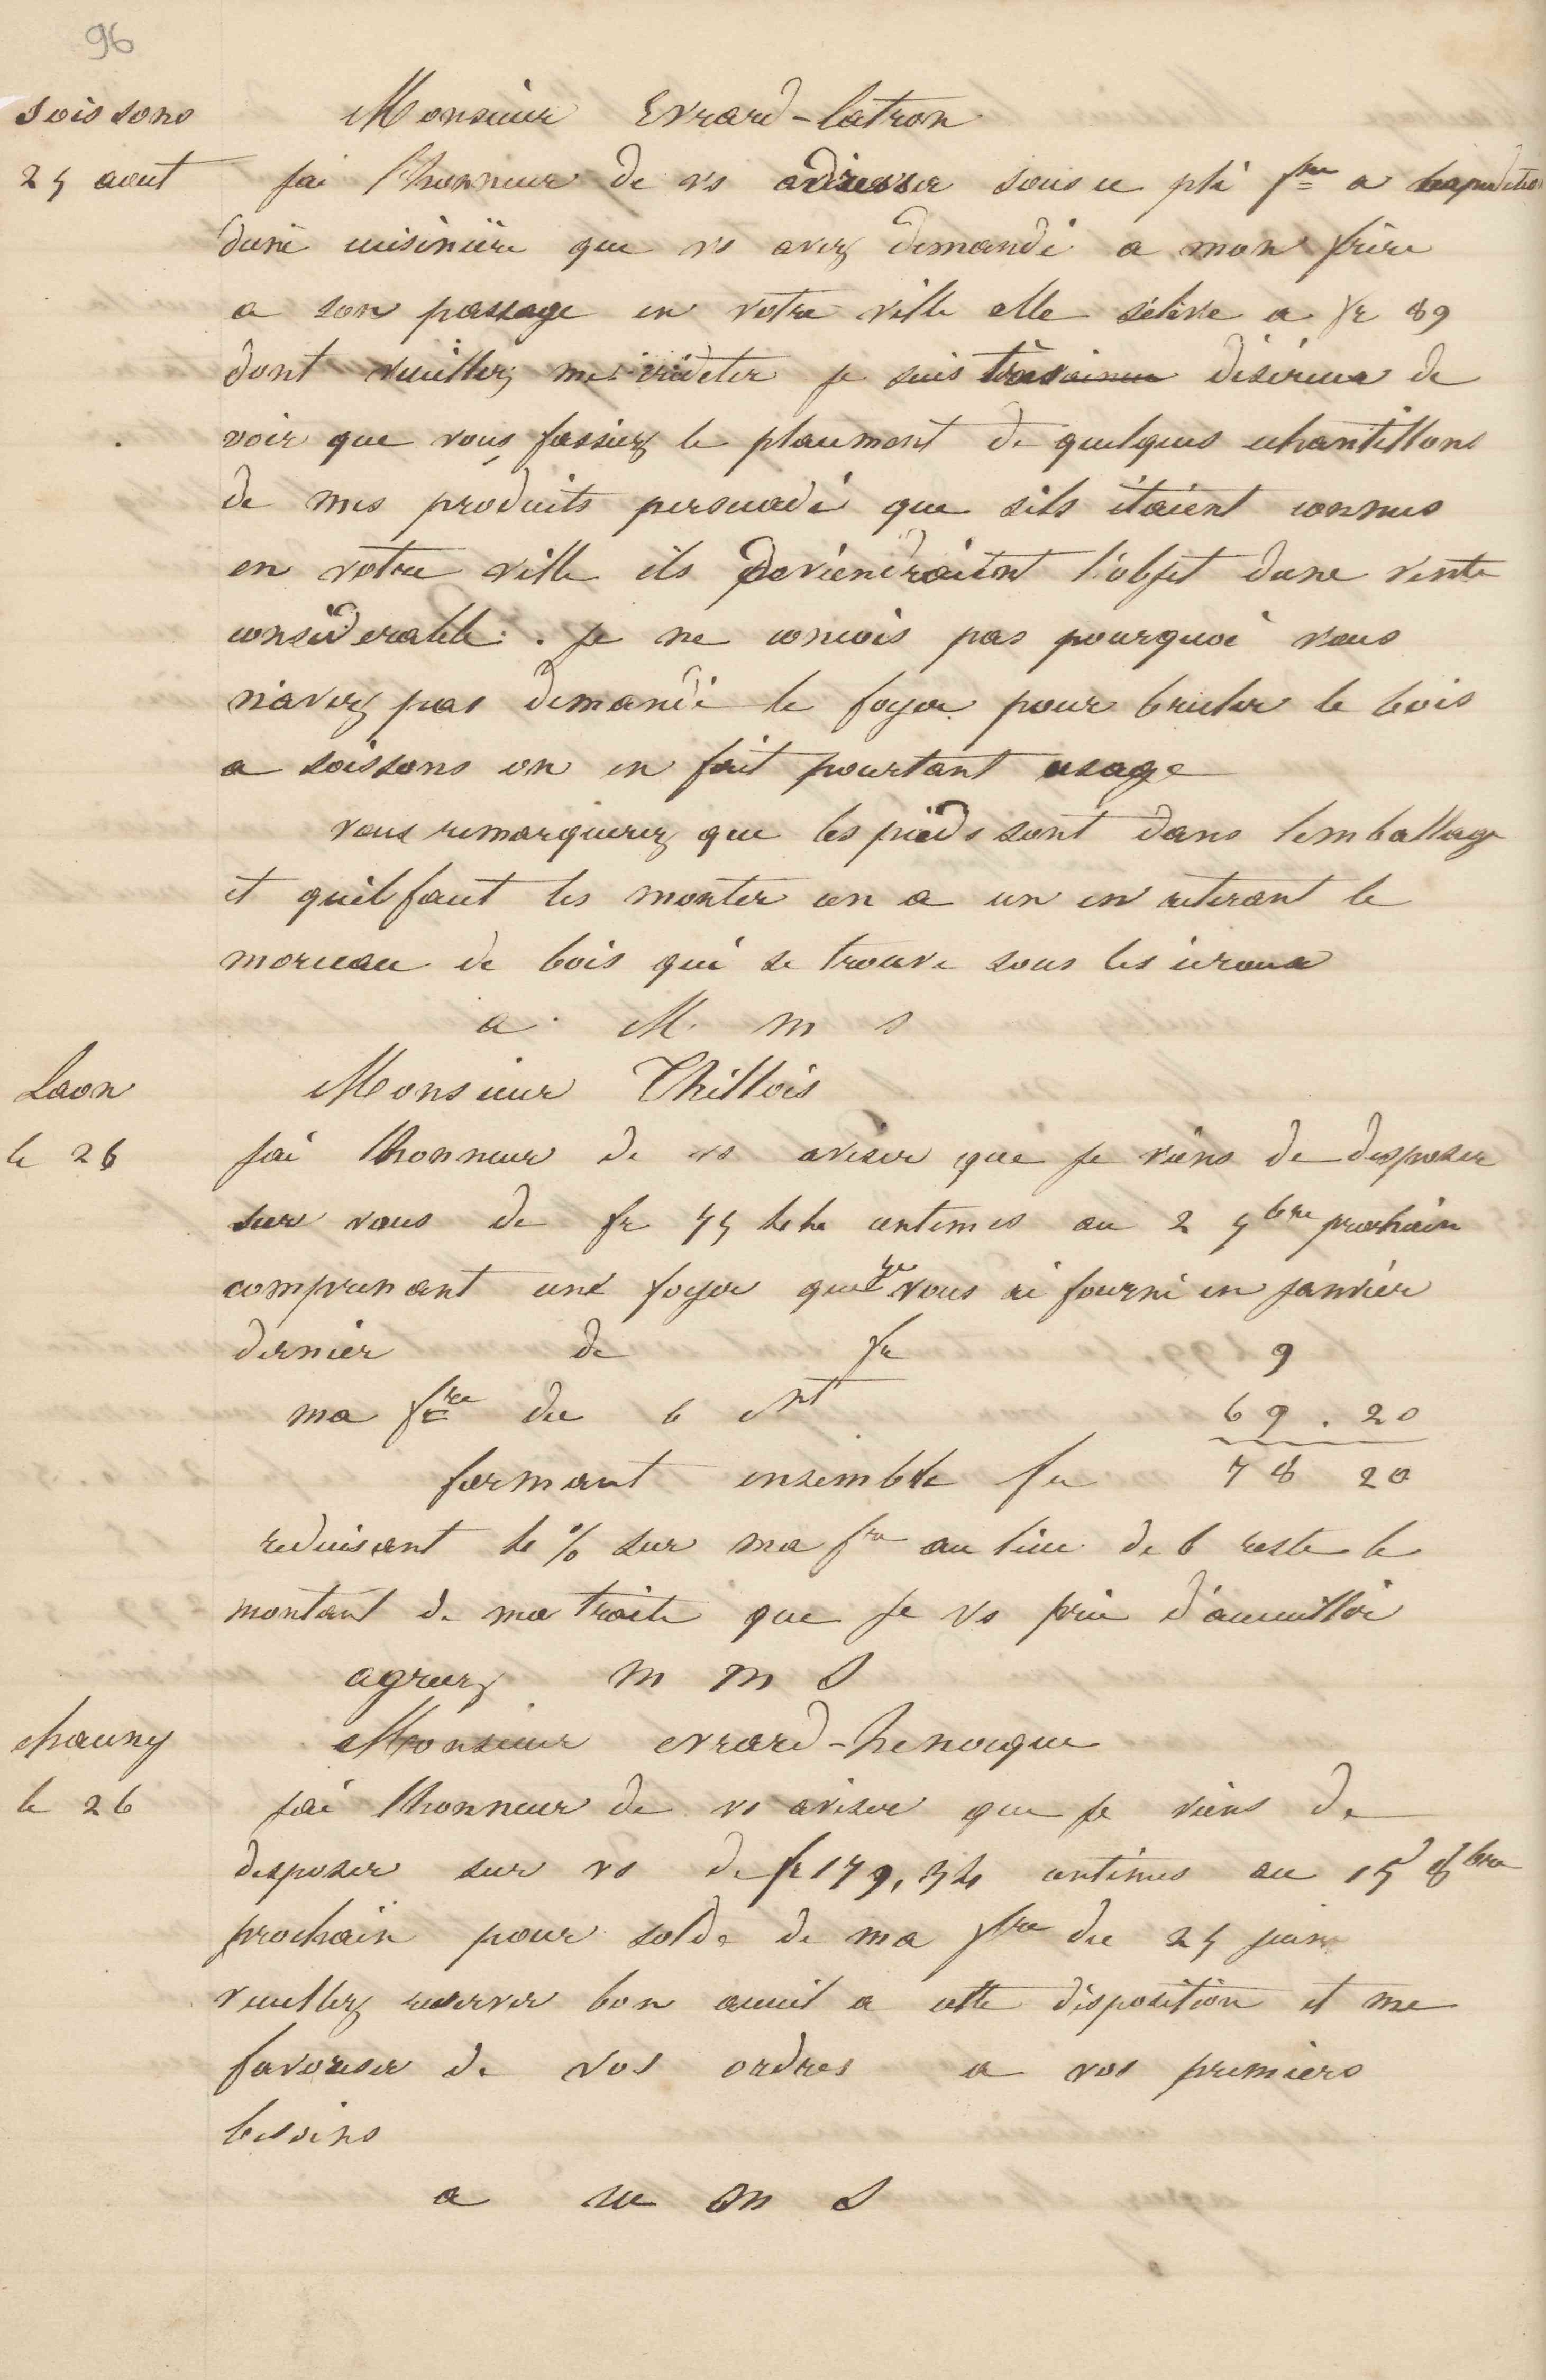 96
Soissons Monsieur Evrard-latron
25 aout jai l'honneur de vs adresser sous ce pli fre a lexpedition
dune cuisinière que vs avez demandé a mon frère
a son passage en votre ville elle sélève a fr 89
dont veuillez me créditer je suis désireux de
voir que vous fassiez le placement de quelques echantillons
de mes produits persuadé que sils étaient connus
en votre ville ils deviendraient l'objet dune vente
considerable. je ne concois pas pourquoi vous
n'avez pas demandé le foyer pour bruler le bois
a soissons on en fait pourtant usage
vous remarquerez que les pieds sont dans lemballage
et quil faut les monter un a un en retirant le
morceau de bois qui se trouve sous les ecroux
a M m s
Laon Monsieur Thillois
le 26 jai lhonneur de vs aviser que je viens de disposer
sur vous de fr 75 44 centimes au 25 9bre prochain
comprenant une foyer que je vous ai fourni en janvier
dernier de fr 9
ma fre du 6 ct 69.20
formant ensemble fr 78 20
reduisant 4 % sur ma fre au lieu de 6 reste le
montant de ma traite que je vs prie d'acceuillir
agreez m m S
chauny Monsieur evrard-henocque
le 26 jai lhonneur de vs aviser que je viens de
disposer sur vs de fr 179,34 centimes au 15 8bre
prochain pour solde de ma fre du 25 juin
veuillez reserver bon acceuil a cette disposition et me
favoriser de vos ordres a vos premiers
besoins
a m m S